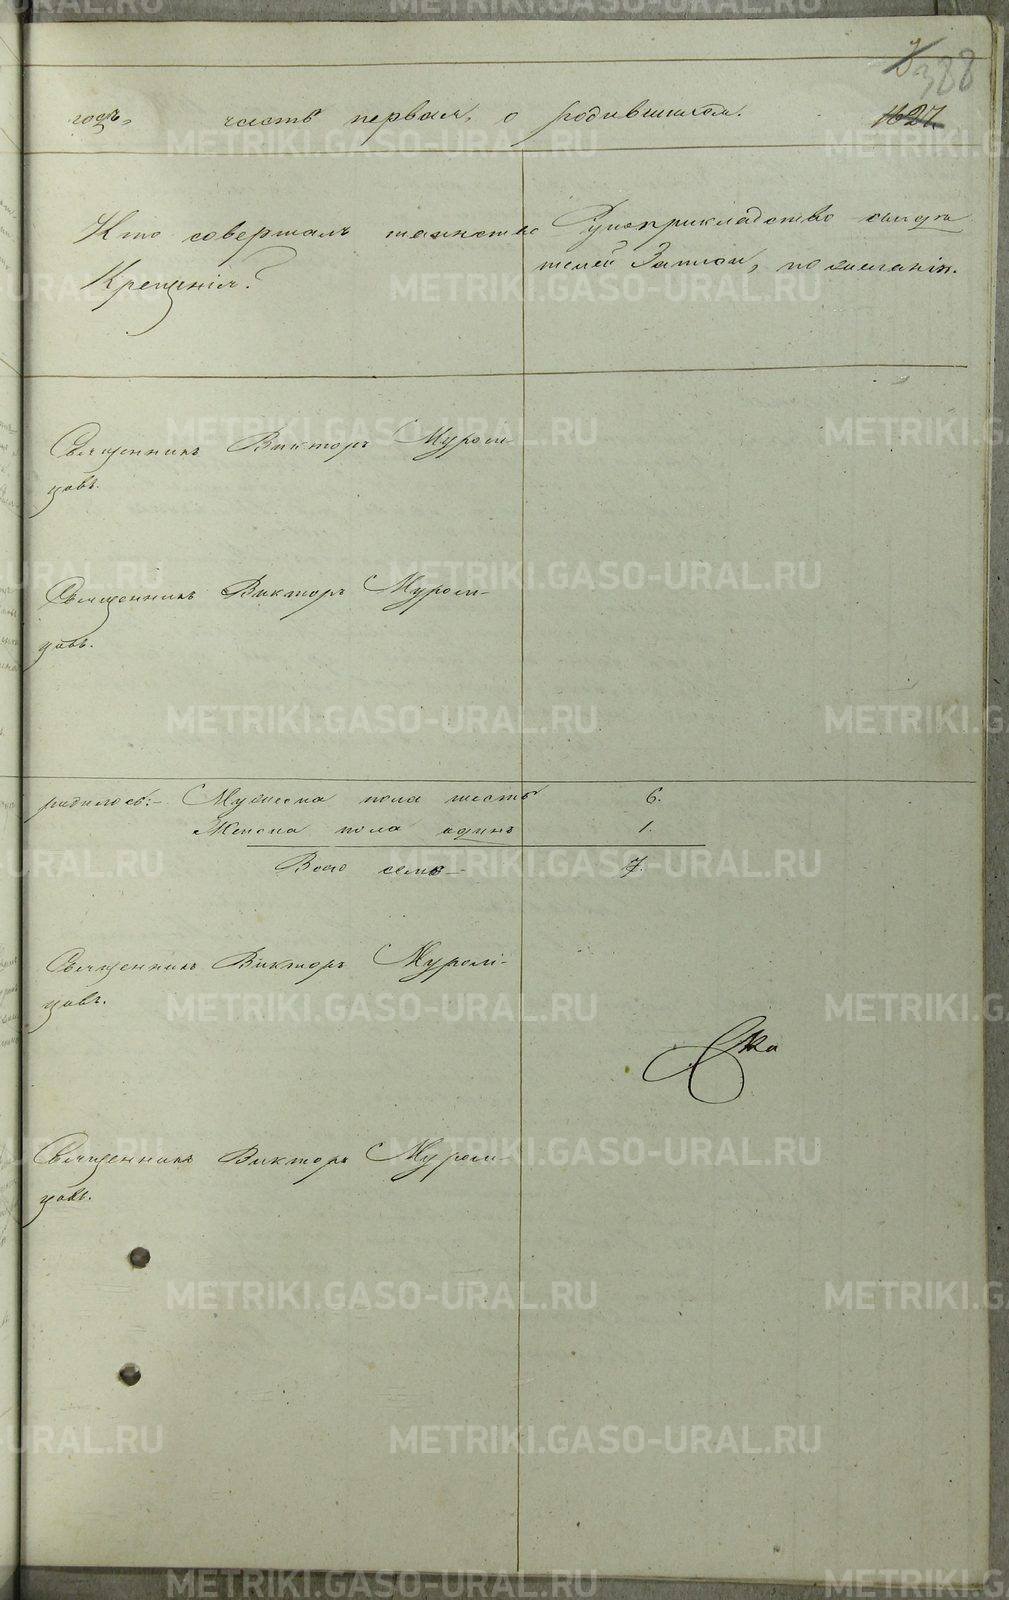 388
годъ, часть первая, о родившихся. 1627.
Кто совершалъ таинство
Крещенія?
Рукоприкладство свидѣ
телей записи, по желанію.
Священникъ Викторъ Муром-
цовъ.
Священникъ Викторъ Муром-
цовъ.
родилось:- Мужеска пола шесть 6.
Женска пола одинъ 1.
Всего семь 7.
Священникъ Викторъ Муром-
цовъ.
Священникъ Викторъ Муром-
цовъ.
METRIKI.GASO-URAL.RU